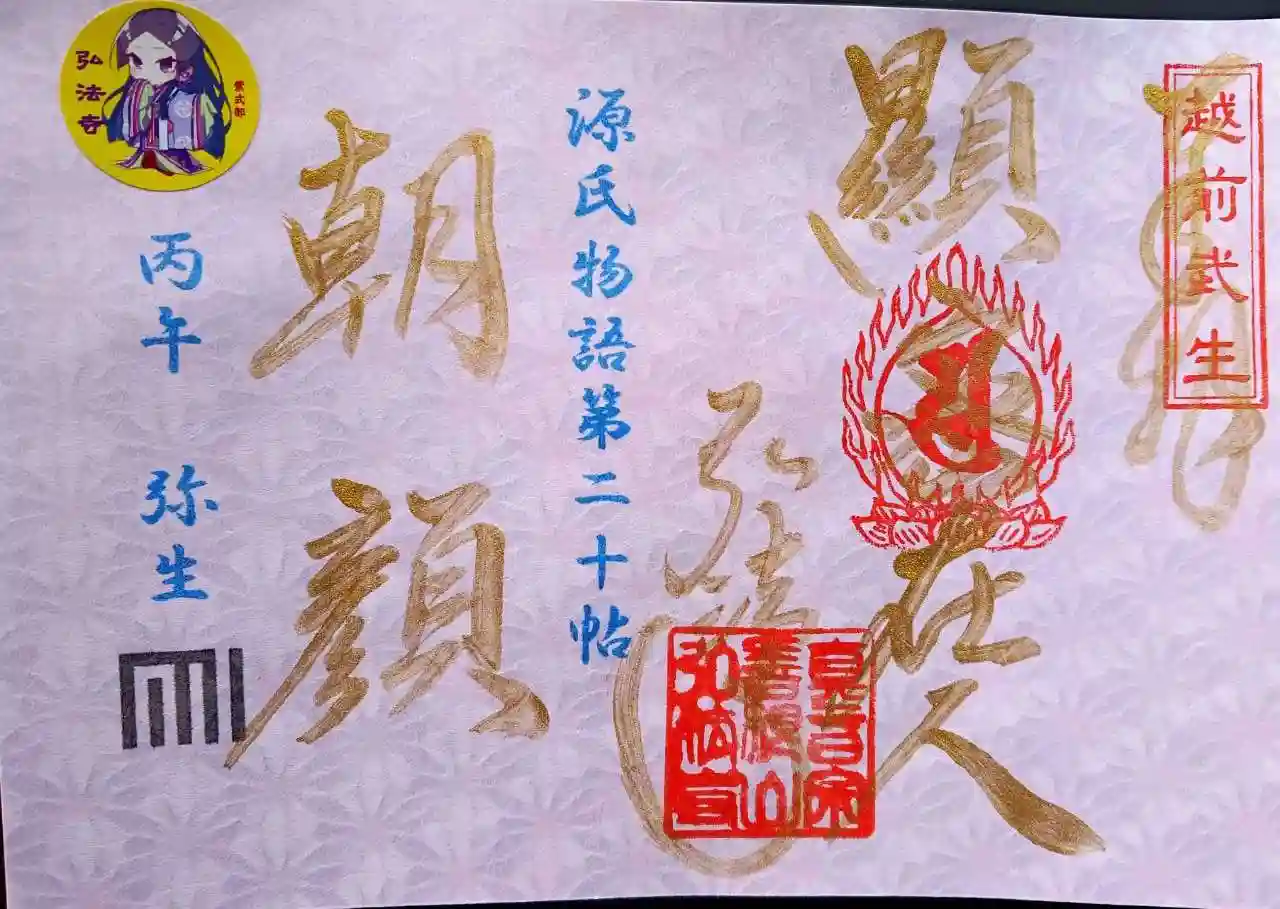 奉拝
越前武生
顯密在人
弘法寺
真言宗
源氏物語第二十帖
朝顔
丙午 弥生
紫式部
弘法寺